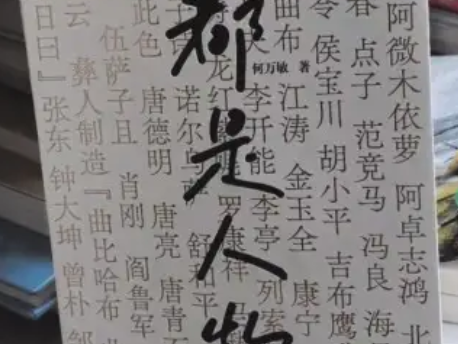 都是人物
何万敏 著
阿微木依萝 阿卓志鸿 北
点子 范竞马 冯良 海
侯宝川 胡小平 吉布鹰
曲布 江涛 金玉全 康宁
李开能 李亭 列索
龙红 罗康祥 马
诺尔乌 舒和平
此色 唐德明 唐亮 唐青
伍萨子且 肖刚 阎鲁军
云 彝人制造『曲比哈布
』张东 钟大坤 曾朴 邹